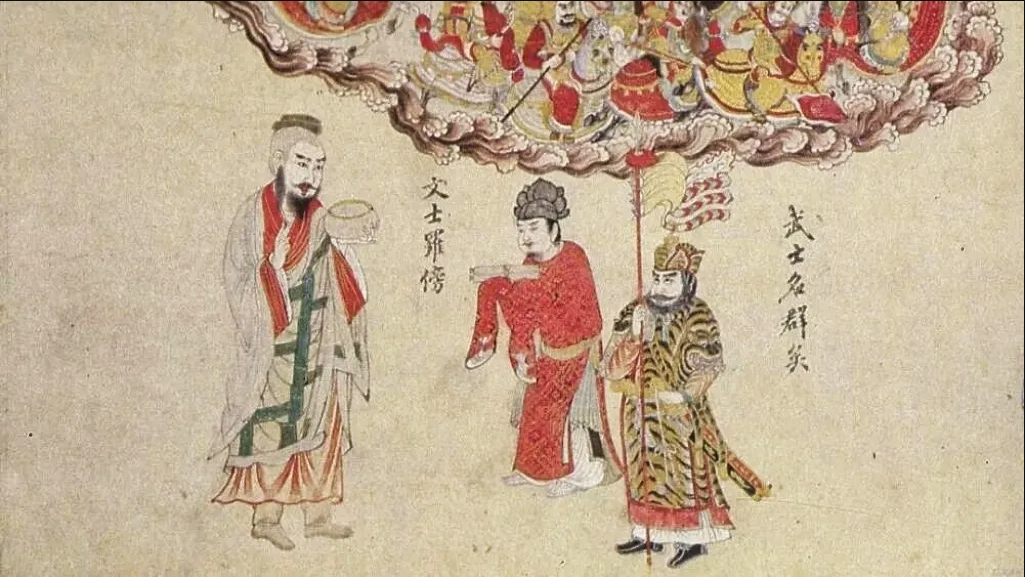 武士各群矣
文士羅傍